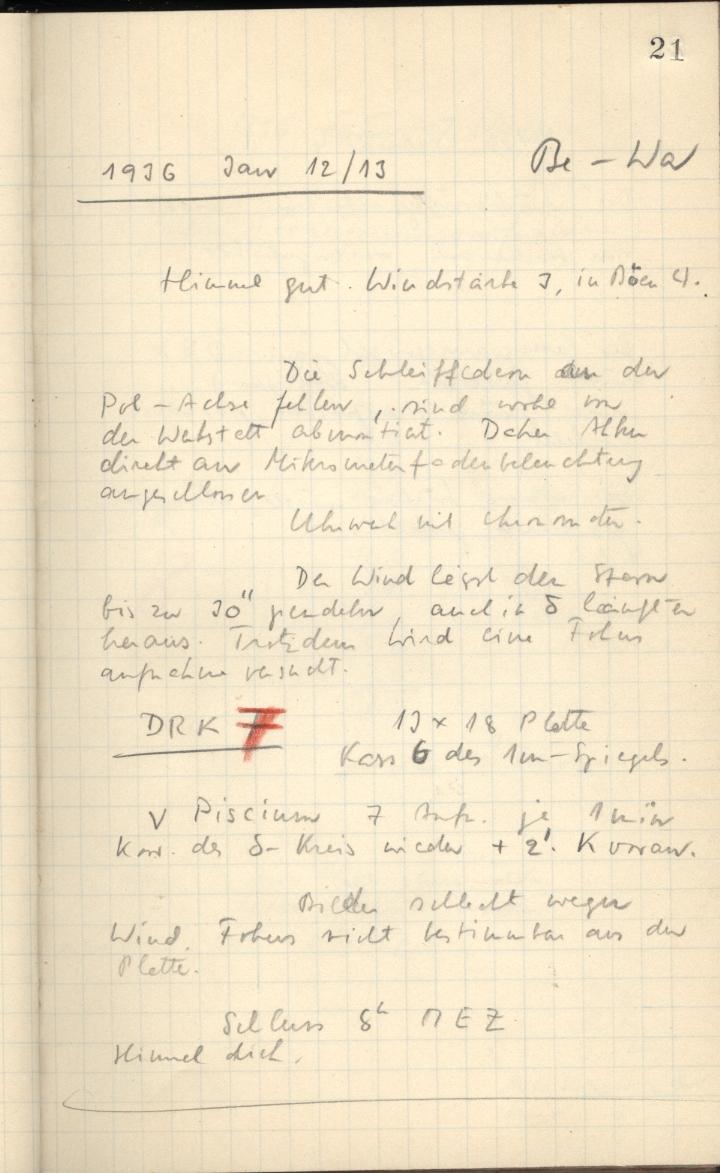 21
1936 Jan 12/13 Be – Wa
Himmel gut. Windstärke 3, in Böen 4.
Die Schleiffedern an der
Pol-Achse fehlen, sind wohl von
der Werkstatt abmontiert. Daher Akku
direkt an Mikrometerfadenbeleuchtung
angeschlossen
Uhrwerk mit Chronometer.
Der Wind lässt den Stern
bis zu 30" pendeln, auch in δ läuft er
heraus. Trotzdem wird eine Fokus
aufnahme versucht.
DRK 7 13 x 18 Platte
Kass 6 des 1m-Spiegels.
ν Piscium 7 Aufn. je 1 min
Korr. des δ-Kreis wieder + 2'. K voran.
Bilder schlecht wegen
Wind. Fokus nicht bestimmbar aus der
Platte.
Schluss 8h MEZ
Himmel dick.